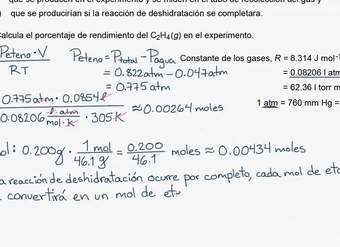 que se producen en el experimento y se miden en el tubo de recolección del gas y
que se producirían si la reacción de deshidratación se completara.
Calcula el porcentaje de rendimiento del C₂H₄(g) en el experimento.
Peteno · V / RT
Peteno = Ptotal - Pagua
= 0.822 atm - 0.047 atm
= 0.775 atm
Constante de los gases, R = 8.314 J mol⁻
= 0.08206 l atm
= 62.36 l torr m
1 atm = 760 mm Hg =
0.775 atm · 0.0854 l / 0.08206 l·atm/mol·K · 305 K ≈ 0.00264 moles
ol: 0.200 g · 1 mol / 46.1 g = 0.200 / 46.1 moles ≈ 0.00434 moles
a reacción de deshidratación ocurre por completo, cada mol de eta
convertirá en un mol de et